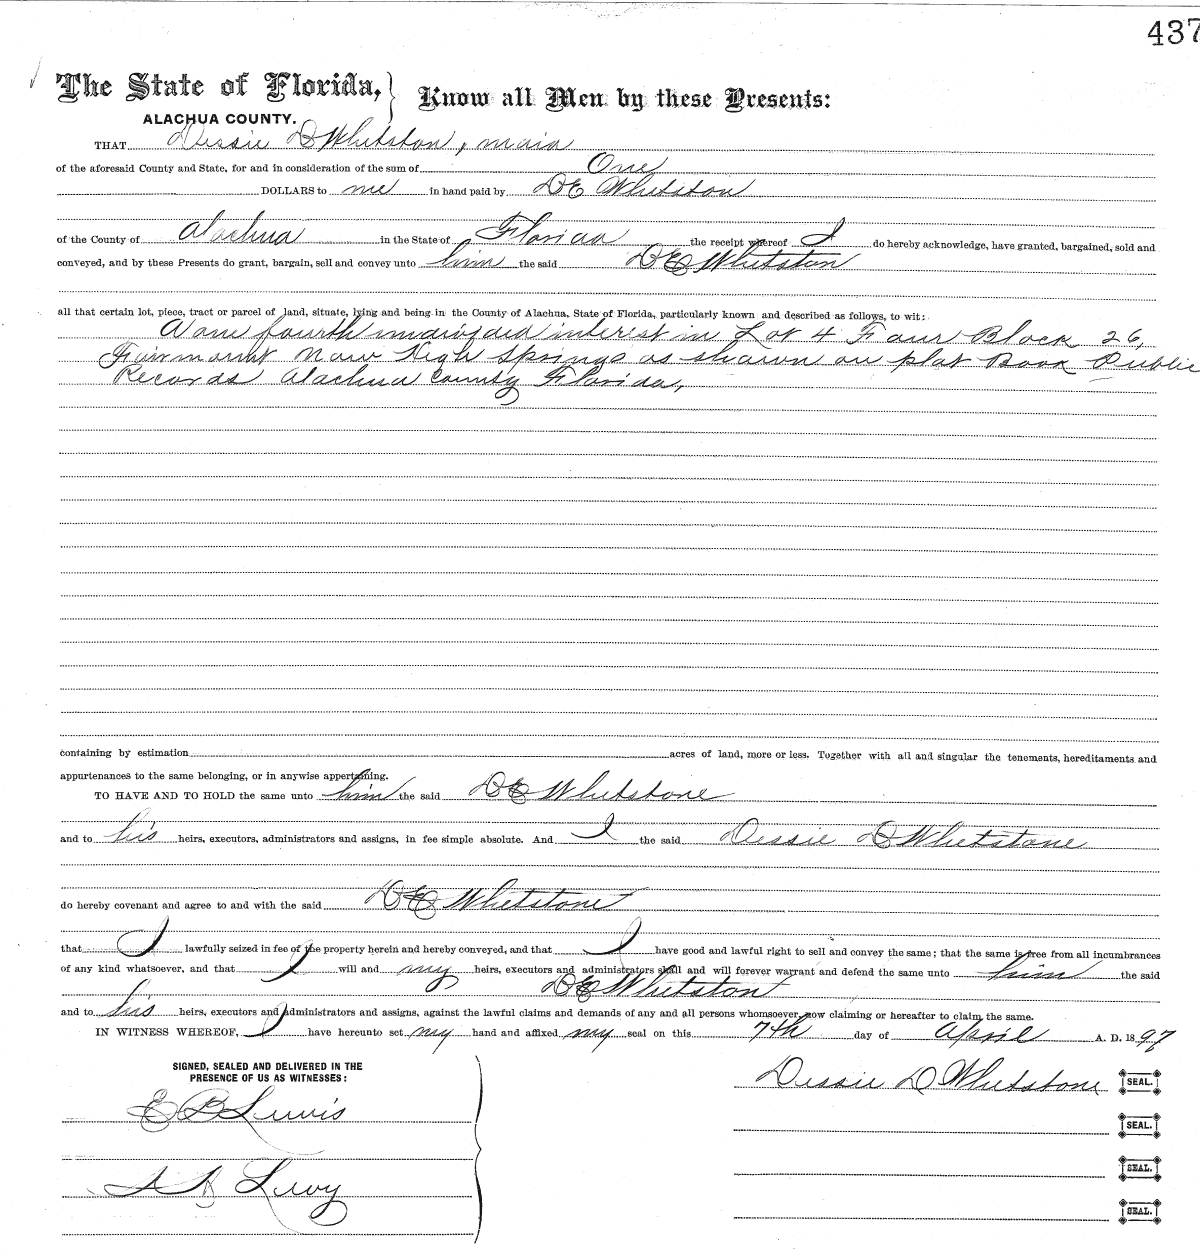 437
The State of Florida, } Know all Men by these Presents:
ALACHUA COUNTY.
THAT Dessie D Whitston, maid
of the aforesaid County and State, for and in consideration of the sum of One
DOLLARS to me in hand paid by D E Whitston
of the County of Alachua in the State of Florida the receipt whereof I do hereby acknowledge, have granted, bargained, sold and
conveyed, and by these Presents do grant, bargain, sell and convey unto him the said D E Whitston
all that certain lot, piece, tract or parcel of land, situate, lying and being in the County of Alachua, State of Florida, particularly known and described as follows, to wit:
A one fourth undivided interest in Lot 4 Four Block 26,
Fairmount now High Springs as shown on plat Book Public
Records Alachua County Florida,
containing by estimation acres of land, more or less. Together with all and singular the tenements, hereditaments and
appurtenances to the same belonging, or in anywise appertaining.
TO HAVE AND TO HOLD the same unto him the said D E Whetstone
and to his heirs, executors, administrators and assigns, in fee simple absolute. And I the said Dessie D Whetstone
do hereby covenant and agree to and with the said D E Whetstone
that I lawfully seized in fee of the property herein and hereby conveyed, and that I have good and lawful right to sell and convey the same; that the same is free from all incumbrances
of any kind whatsoever, and that I will and my heirs, executors and administrators shall and will forever warrant and defend the same unto him the said
D E Whitston
and to his heirs, executors and administrators and assigns, against the lawful claims and demands of any and all persons whomsoever, now claiming or hereafter to claim, the same.
IN WITNESS WHEREOF, I have hereunto set my hand and affixed my seal on this 7th day of April A. D. 1897
SIGNED, SEALED AND DELIVERED IN THE
PRESENCE OF US AS WITNESSES:
Dessie D Whetstone SEAL.
E B Lewis
SEAL.
SEAL.
Levy
SEAL.